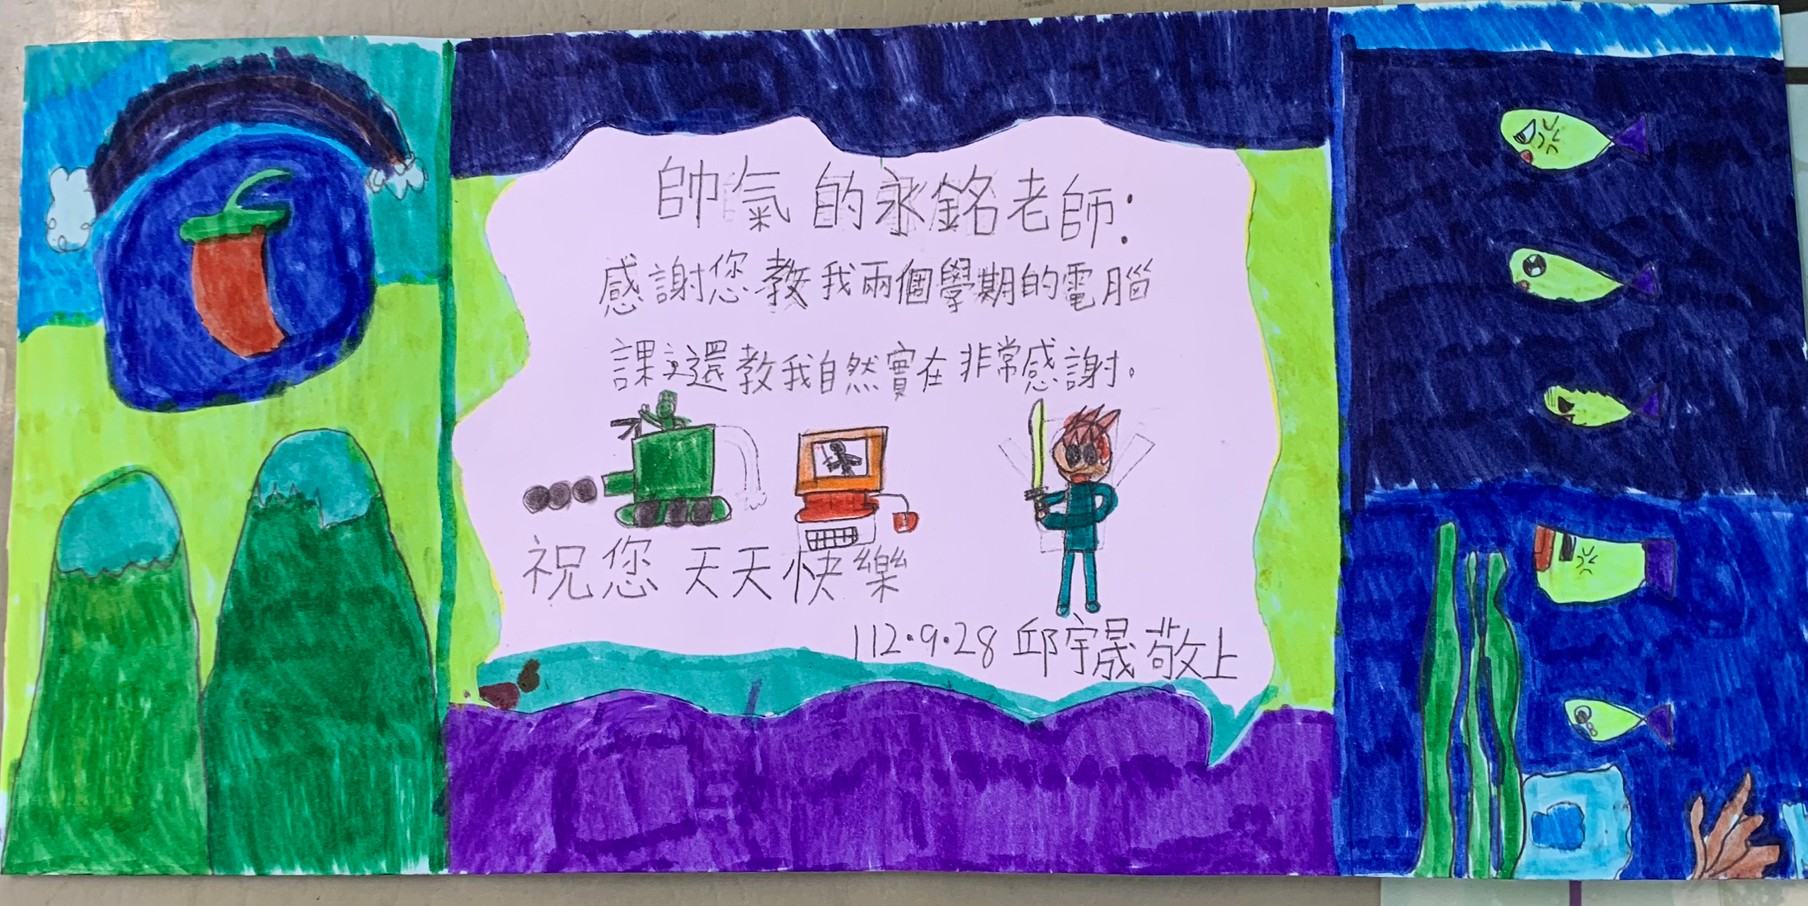 帥氣的永銘老師:
感謝您教我兩個學期的電腦
課還教我自然實在非常感謝。
祝您天天快樂
112.9.28 邱宇晟敬上